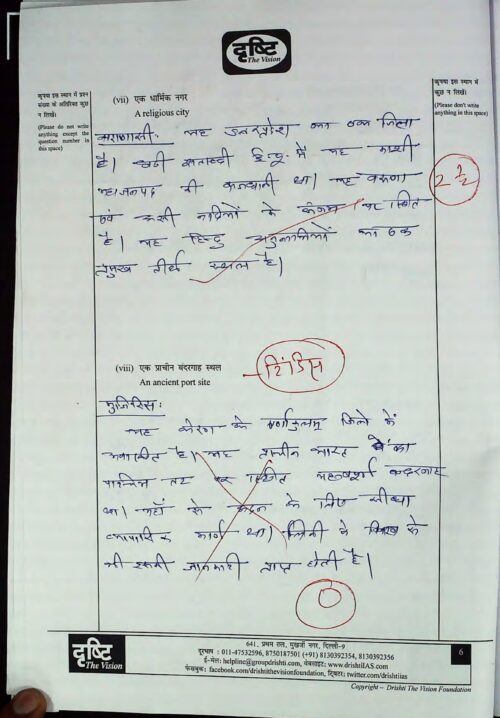 दृष्टि
The Vision
कृपया इस स्थान में प्रश्न
संख्या के अतिरिक्त कुछ
न लिखें।
(Please do not write
anything except the
question number in
this space)
कृपया इस स्थान में
कुछ न लिखें।
(Please don't write
anything in this space)
(vii) एक धार्मिक नगर
A religious city
वाराणसी: यह उत्तरप्रदेश का एक जिला
है। छठी शताब्दी ई०पू० में यह काशी
महाजनपद की राजधानी था। यह वरुणा
एवं असी नदियों के संगम पर स्थित
है। यह हिन्दु का एक
प्रमुख तीर्थ स्थल है।
2 1/2
(viii) एक प्राचीन बंदरगाह स्थल
An ancient port site
टिंडिस
मुजिरिस:
यह केरल के जिले में
अवस्थित है। यह प्राचीन भारत का
तट पर स्थित महत्वपूर्ण बन्दरगाह
था। यहाँ से के लिए सीधा
व्यापारिक मार्ग था। प्लिनी के विवरण से
भी इसकी जानकारी प्राप्त होती है।
0
दृष्टि
The Vision
641, प्रथम तल, मुखर्जी नगर, दिल्ली-9
दूरभाष : 011-47532596, 8750187501 (+91) 8130392354, 8130392356
ई-मेल: helpline@groupdrishti.com, वेबसाइट: www.drishtiIAS.com
फेसबुक: facebook.com/drishtithevisionfoundation, ट्विटर: twitter.com/drishtiias
6
Copyright – Drishti The Vision Foundation